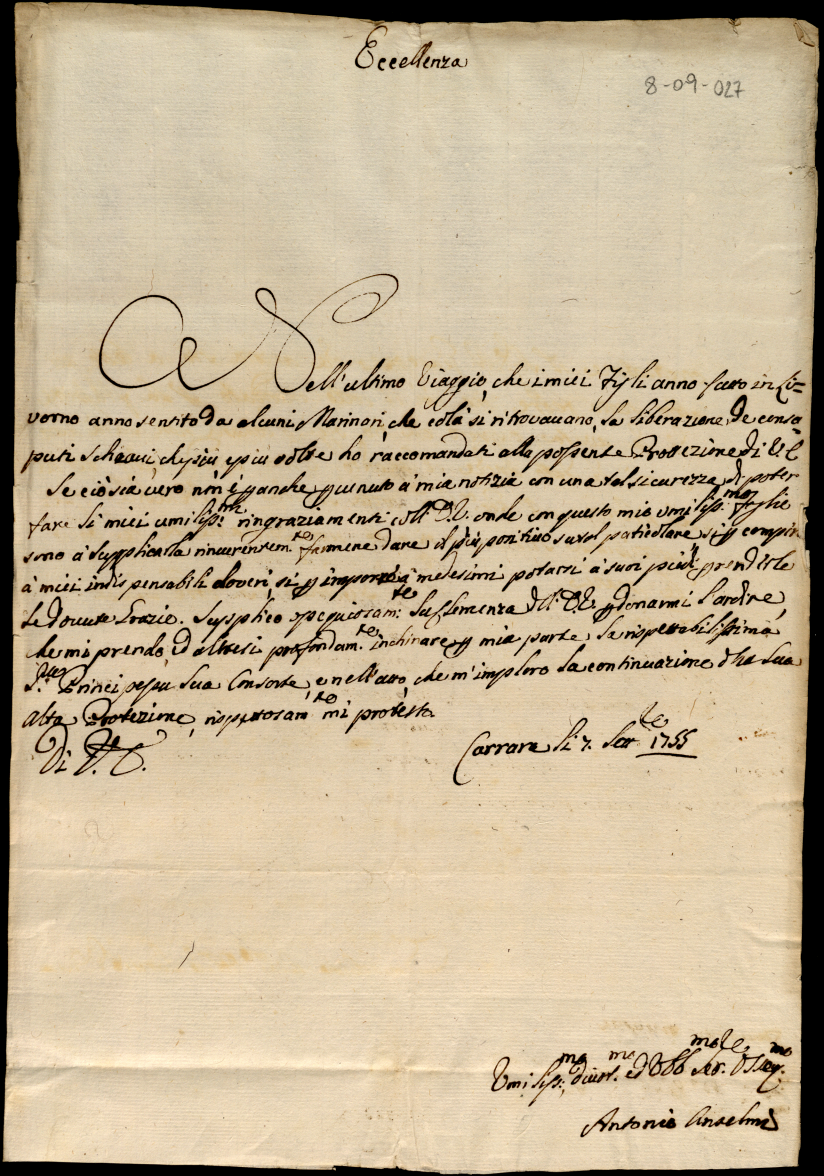 Eccellenza
8-09-027
Nell'ultimo Viaggio, che i miei Figli anno fatto in Li=
vorno anno sentito da alcuni Marinari, che colà si ritrovavano, la liberazione de consa=
puti Schiavi, che più e più volte ho raccomandati alla possente Protezione di V.E.
Se ciò sia vero non è p anche p venuto à mia notizia con una tal sicurezza di poter
fare li miei umiliss:mi ringraziamenti coll' V.E. onde con questo mio umiliss:mo foglio
sono à supplicarla riverentem:te farmene dare il più positivo sì p compire
à miei indispensabili doveri, sì p imporre à medesimi portarsi à suoi piedi p renderle
le dovute Grazie. Supplico ossequiosam:te la Clemenza dell' V.E. p donarmi l'ardire,
che mi prendo, ed altresì profondam:te inchinare p mia parte la rispettabilissima
Sig:ra Principessa Sua Consorte, e nell'atto, che m'imploro la continuazione della Sua
alta Protezione, rispettosam:te mi protesto
Di V.E.
Carrara li 7. Set:bre 1755
Umiliss:mo divot:mo ed Obb:mo Ser:re Osseq:mo
Antonio Anselmi